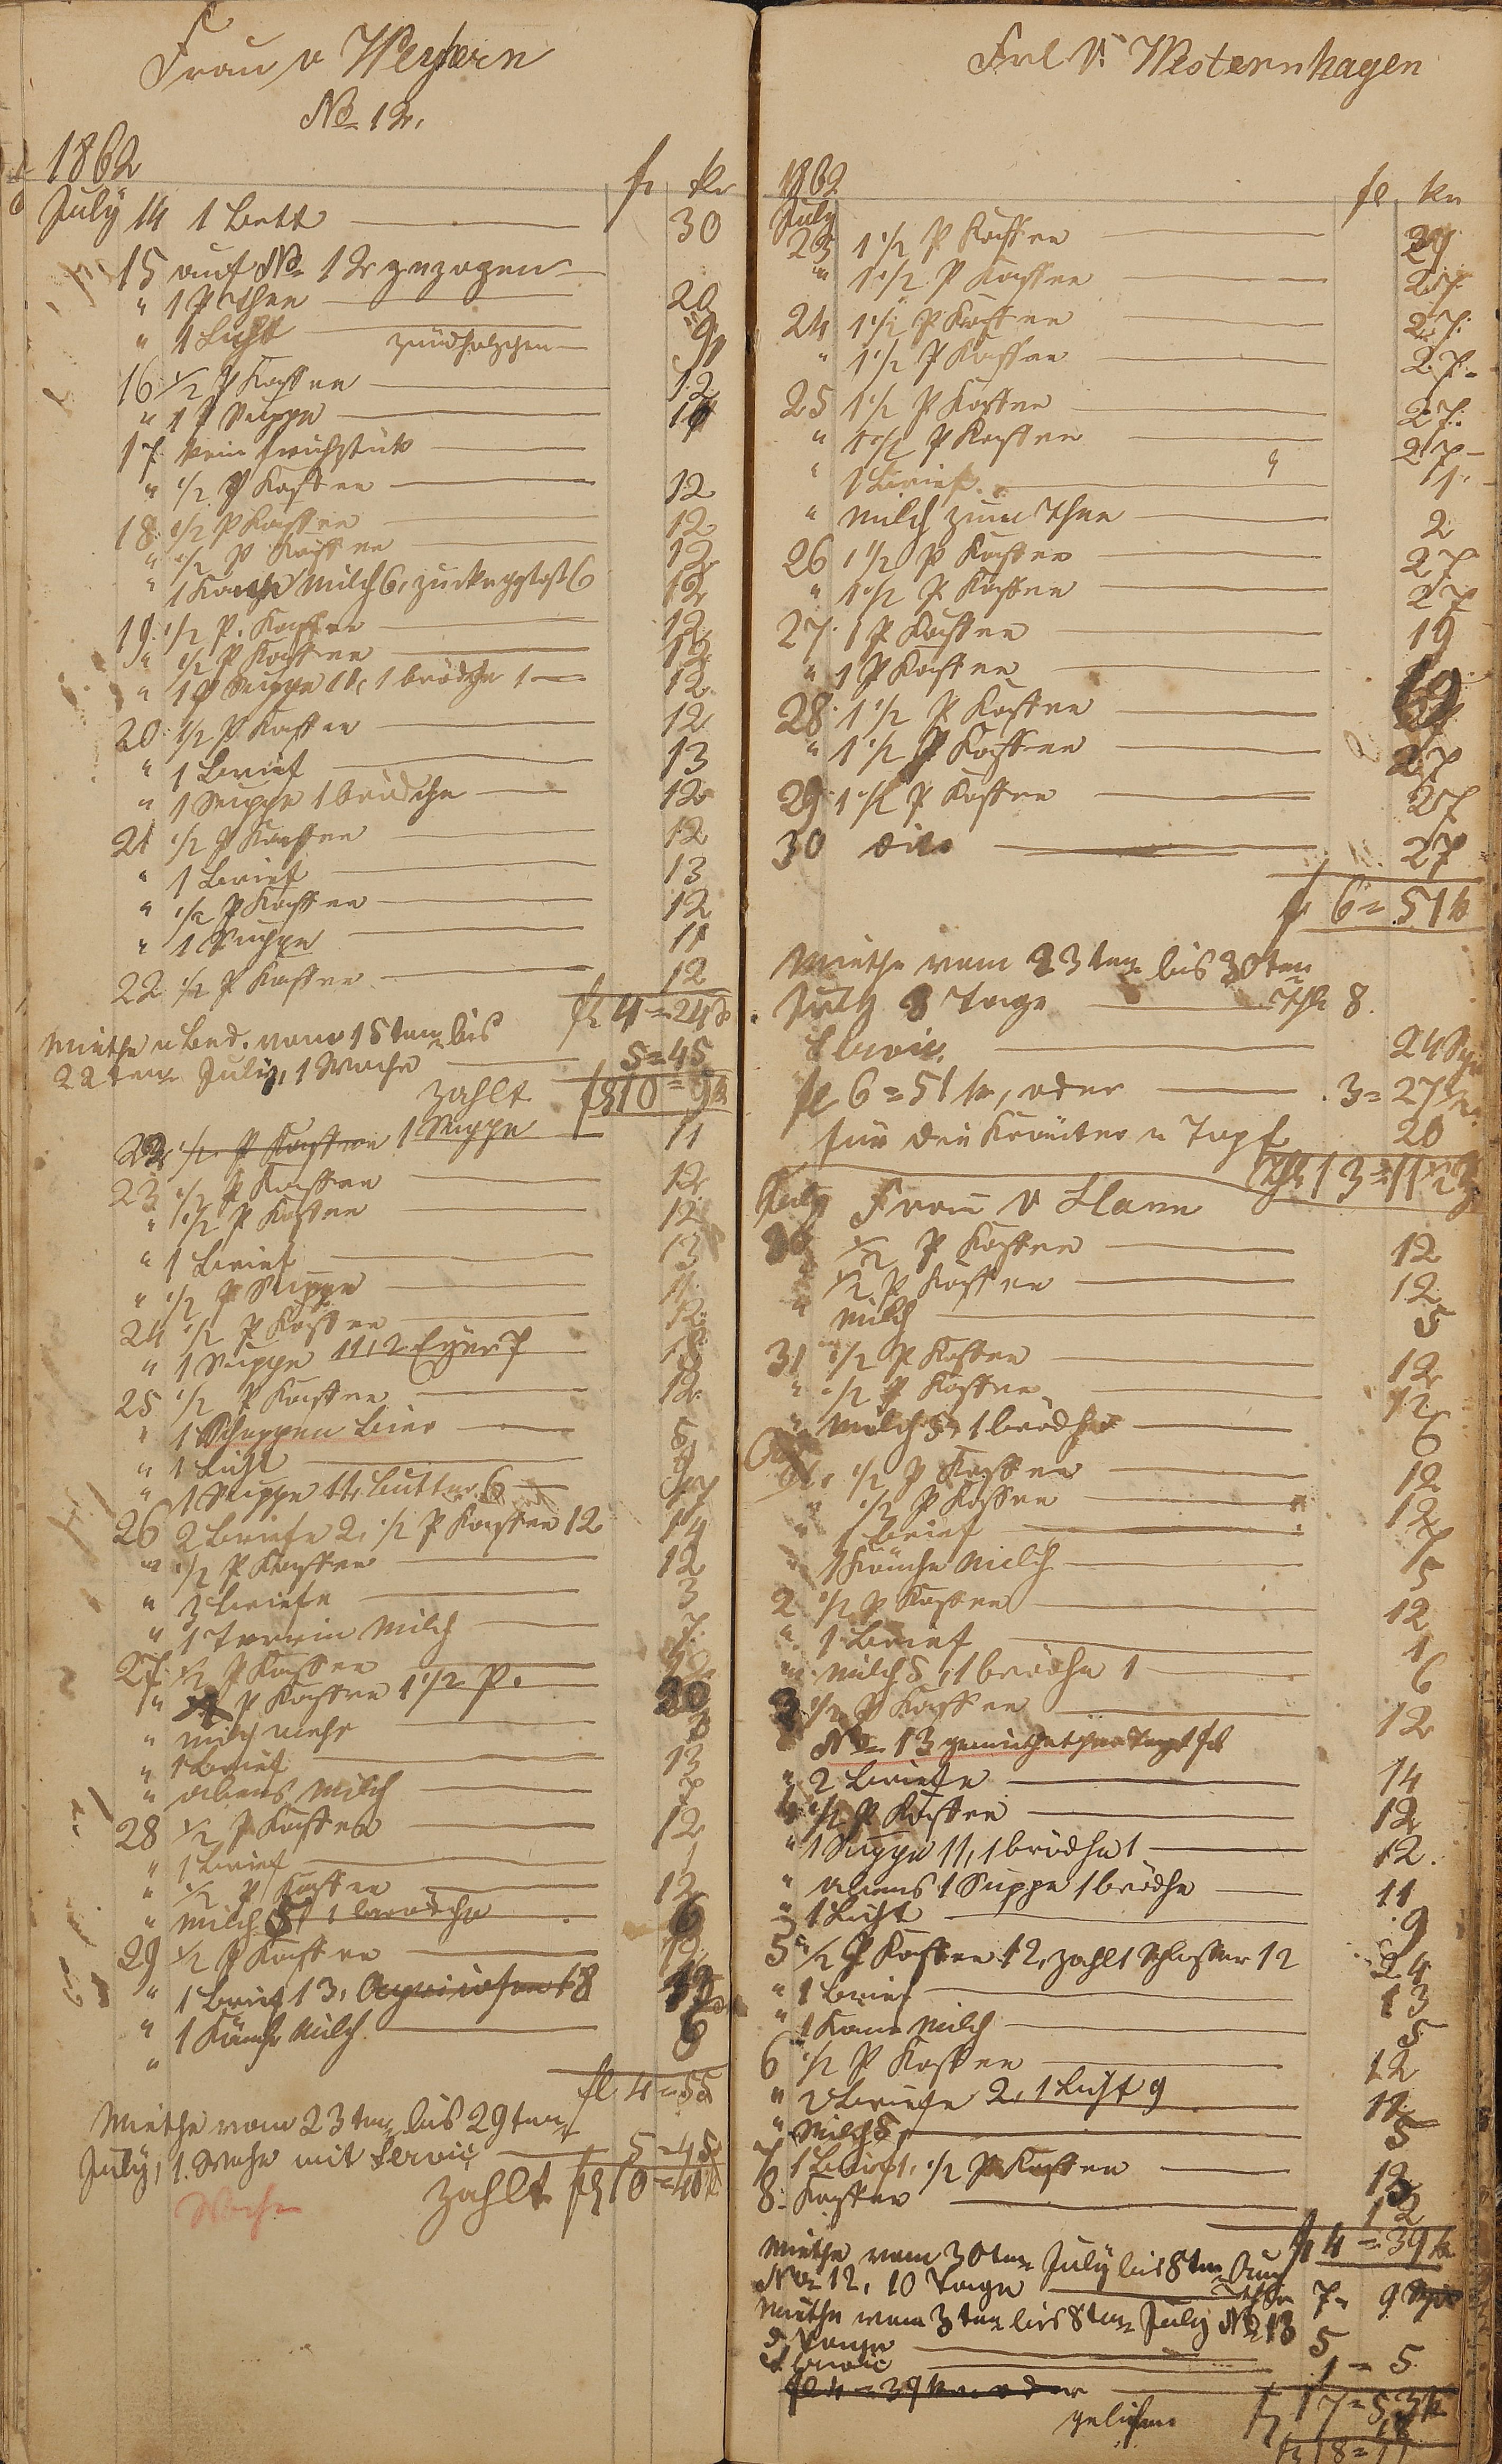 Frau v Weyhern
No 12,
1862
fl kr
July 14 1 Bett 30
15 auf No 12 gezogen
" 1 P Thee 20
" 1 Licht Zündhölzchen 9
16 1/2 P Kaffee 12
" 1 P Suppe 11
17 kein Frühstück
" 1/2 P Kaffee 12
18 1/2 P Kaffee 12
" 1/2 P Kaffee 12
" Milch 6, 6 12
19 1/2 P. Kaffee 12
" 1/2 P Kaffee 12
" 1 P Suppe 11, 1 brödche 1 12
20 1/2 P Kaffee 12
" 1 Brief 13
" 1 Suppe 1 brödche 12
21 1/2 P Kaffee 12
" 1 Brief 13
" 1/2 P Kaffee 12
" 1 Suppe 11
22 1/2 P Kaffee 12
fl 4 = 24 kr
Miethe u Bed. vom 15ten bis
22ten July, 1 Woche 5 = 45
zahlt fl 10 = 9 kr
22 1/2 P Kaffee 1 Suppe 11
23 1/2 P Kaffee 12
" 1/2 P Kaffee 12
" 1 Brief 13
" 1/2 P Suppe 11
24 1/2 P Kaffee 12
" 1 Suppe 11, 2 Eyer 7 18
25 1/2 P Kaffee 12
" 1 Schoppen Bier 6
" 1 Licht 9
" 1 Suppe 11, Butter 6 17
26 2 Briefe 2, 1/2 P Kaffee 12 14
" 1/2 P Kaffee 12
" 3 Briefe 3
" 1 Terrin Milch 7
27 1/2 P Kaffee 12
" P Kaffee 1 1/2 P. 30
" Milch mehr 3
" 1 Brief 13
" abens Milch 7
28 1/2 P Kaffee 12
" 1 Brief 1
" 1/2 P Kaffee 12
" Milch 5, 1 brödche 6
29 1/2 P Kaffee 12
" 1 Brief 13, Apricosen 18 13
" 1 Känche Milch 6
"
fl 4 = 55
Miethe vom 23ten bis 29ten
July, 1. Woche mit Servic 5 = 45
zahlt fl 10 = 40 kr
Woche
Frl v. Westernhagen
1862
fl kr
July
23 1 1/2 P Kaffee 27
" 1 1/2 P Kaffee 27
24 1 1/2 P Kaffee 27
" 1 1/2 P Kaffee 27
25 1 1/2 P Kaffee 27
" 1 1/2 P Kaffee 27
" 1 Brief 1
" Milch zum Thee 2
26 1 1/2 P Kaffee 27
" 1 1/2 P Kaffee 27
27 1 P Kaffee 19
" 1 P Kaffee 19
28 1 1/2 P Kaffee 27
" 1 1/2 P Kaffee 27
29 1 1/2 P Kaffee 27
30 dito 27
fl 6 = 51 kr
Miethe vom 23ten bis 30ten
July 8 Tage Thlr 8.
Servic. 24 Sgr
fl 6 = 51 kr, oder 3 = 27 1/2
für den Kräuter u Topf 20
Thlr 13 = 11 1/2
July Frau v Hann
30 1/2 P Kaffee 12
" 1/2 P Kaffee 12
" Milch 5
31 1/2 P Kaffee 12
" 1/2 P Kaffee 12
" Milch 5, 1 brödche 6
1. 1/2 P Kaffee 12
" 1/2 P Kaffee 12
" 1 Brief 7
" 1 Känche Milch 5
2 1/2 P Kaffee 12
" 1 Brief 1
" Milch 5, 1 brödche 1 6
3 1/2 P Kaffee 12
No 13 gemiethet per Tag 1 fl
" 2 Briefe 14
4 1/2 P Kaffee 12
" 1 Suppe 11, 1 brödche 1 12
" abens 1 Suppe 1 brödche 11
" 1 Licht 9
5 1/2 P Kaffee 12, zahlt Schlosser 12 24
" 1 Brief 13
" 1 Kane Milch 5
6 1/2 P Kaffee 12
" 2 Briefe 2, 1 Licht 9 11
" Milch 5, 5
7 1 Brief 1, 1/2 P Kaffee 13
8. Kaffee 12
fl 4 = 39 kr
Miethe vom 30ten July bis 8ten Aug
No 12, 10 Tage 7 = 9 Sgr
Miethe vom 3ten bis 8ten July No 13
5 Tage 5
Servic 1 = 5
fl 4 = 39 kr oder
fl 17 = 53 kr
geliehen 18
fl 18 = 11